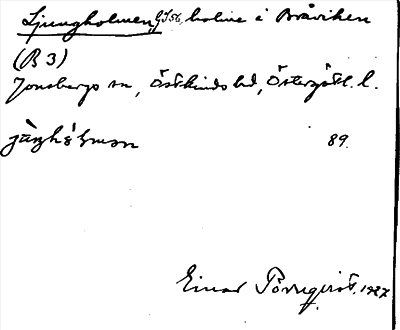 Ljungholmen, GS 56, holme i Bråviken
(B 3)
Jonsbergs sn, Östkinds hd, Östergötl. l.
89.
Einar Törnqvist. 1927